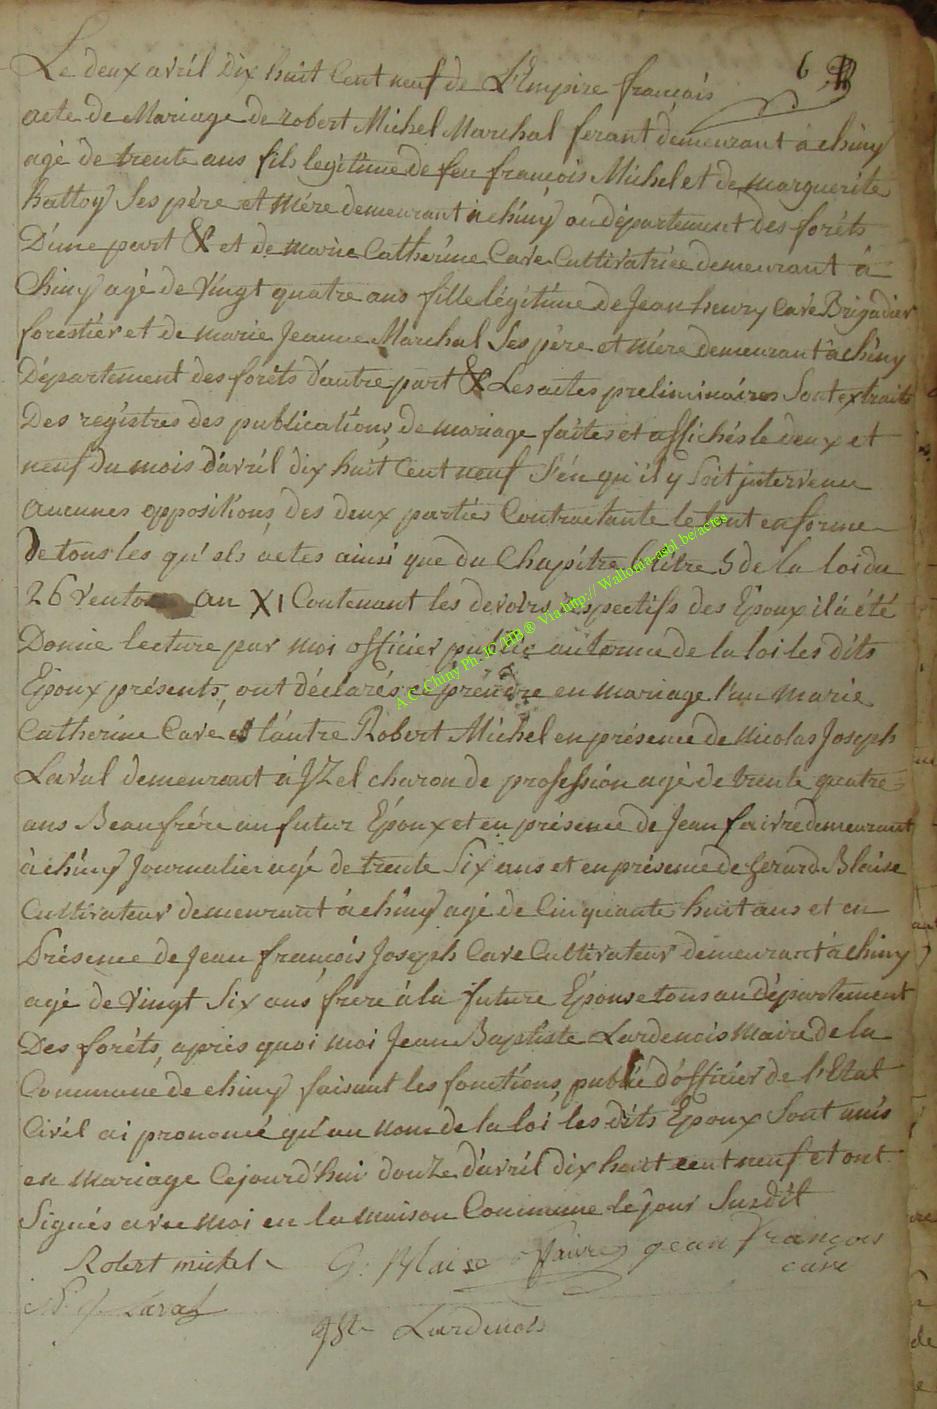 6
Le deux avril Dix huit Cent neuf de L'Empire français
acte de Mariage de robert Michel Marchal ferant demeurant à chiny
agé de trente ans fils legitime de feu françois Michel et de marguerite
hattoy Ses père et mère demeurant à chiny au département Des forêts
D'une part & et de marie Catherine Cave Cultivatrice demeurant à
Chiny agé de Vingt quatre ans fille légitime de Jean henry Cavé Brigadier
forestier et de marie Jeanne Marchal Ses père et mère demeurant à chiny
Département des forêts d'autre part & Les actes preliminaires Sont extraits
Des registres des publications de mariage faites et affichés le deux et
neuf du mois d'avril dix huit Cent neuf S'en qu'il y Soit intervenu
aucunes oppositions des deux parties Contractante le tout en forme
De tous les qu'els actes ainsi que du Chapitre titre 5 de la loi du
26 Vento an XI Contenant les devoirs respectifs des Epoux il à été
Donné lecture par moi officier public au terme de la loi les dits
Epoux présents, ont déclarés ce prendre en mariage l'un Marie
Catherine Cavé et l'autre Robert Michel en présence de Nicolas Joseph
Laval demeurant à JZel charon de profession agé de trente quatre
ans Beaufrére au futur Époux et en présence de Jean faivre demeurant
à chiny Journalier agé de trente Six ans et en présence de Gerard Blaise
Cultivateur demeurant à chiny agé de Cinquante huit ans et en
Présence de Jean françois Joseph Cave Cultivateur demeurant à chiny
agé de Vingt Six ans frere à la future Épouse tous au Département
Des forêts, après quoi moi Jean Baptiste Lardenois Maire de la
Commune de chiny faisant les fonctions public d'officier de l'Etat
Civil ai prononcé qu'au nom de la loi les dits Epoux Sont unis
en mariage Cejourd'hui douze d'avril dix huit cent neuf et ont
Signés avec moi en la maison Commune le jour Susdit
Robert michel G: Blaise faivre Jean François
cavé
N: J: Laval
JBte Lardenois
A.C.Chiny Ph. IC/HB® Via http:// Wallonia-asbl.be/actes